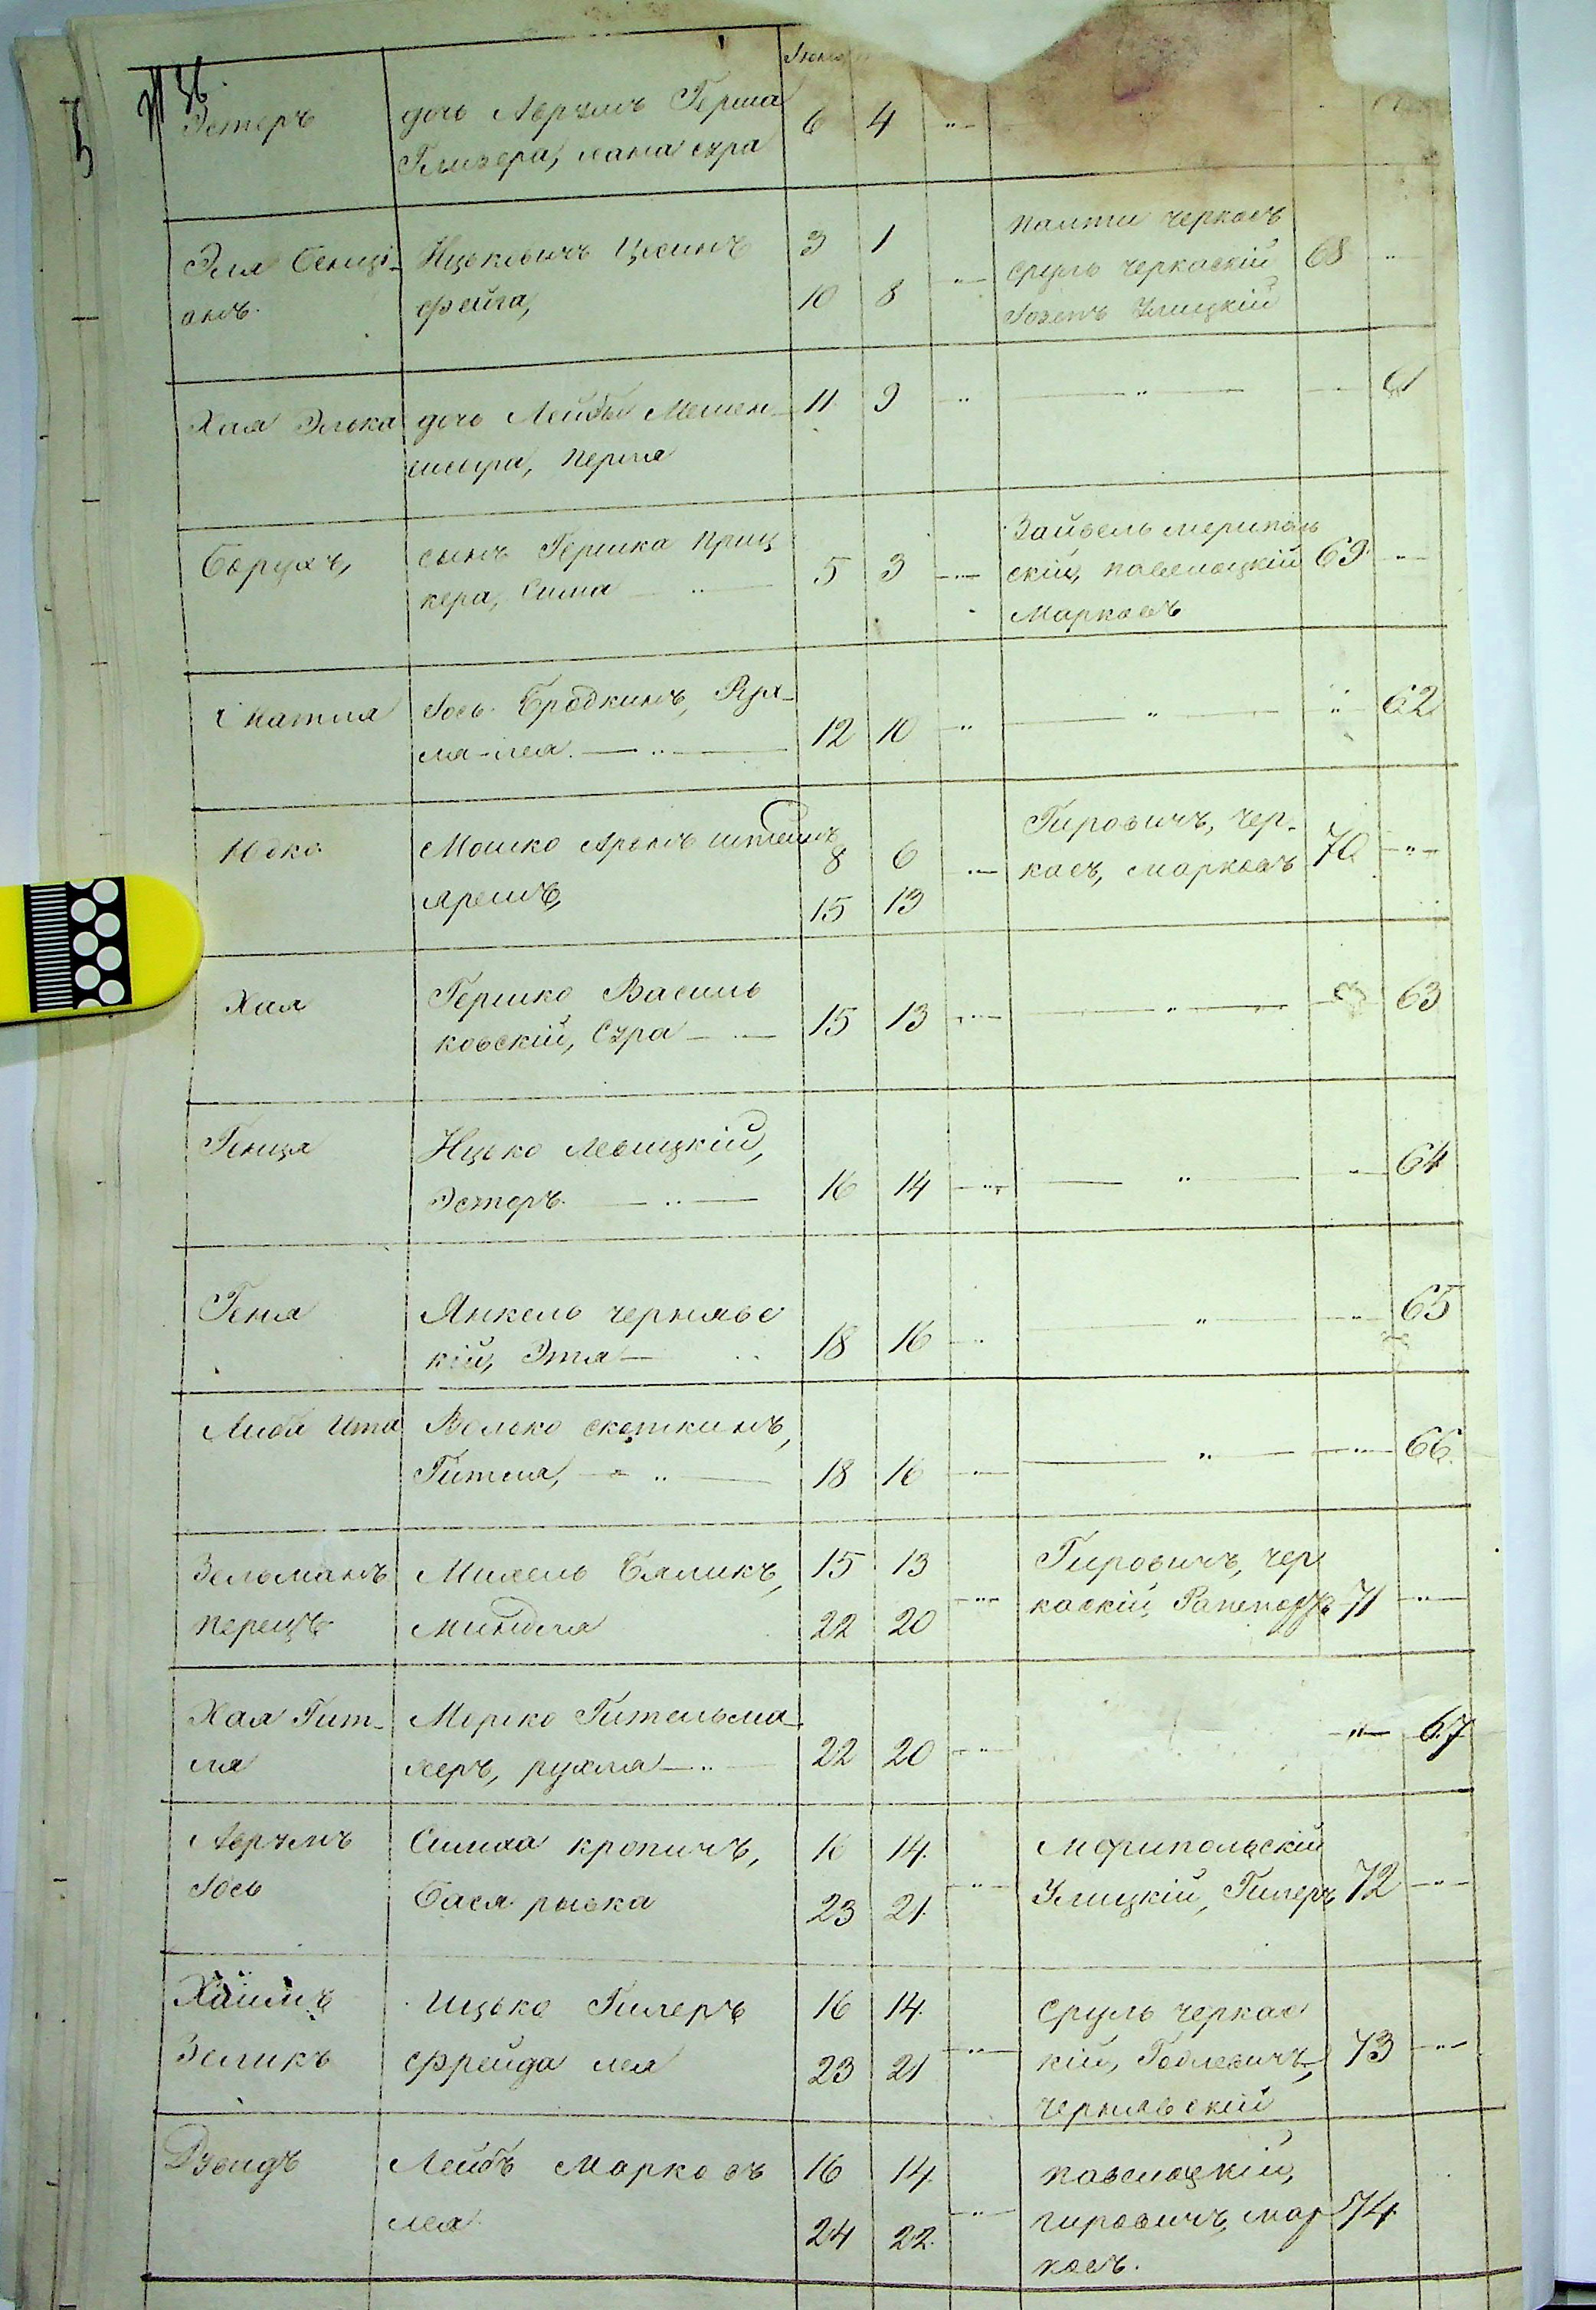 36.
Эстеръ
дочь Аврумъ Герша
Глизера, мама сура
6 4
Эля Бенці-
онъ.
Ицьковичъ Цесинъ
Фейга,
3 1
10 8
Памти Черкасъ
Сруль Черкаскій
Іосепъ Улицкій
68
Хая Элька
дочь Лейбы Мешен-
писера, Перля
11 9
61
Борухъ,
сынъ Гершка Приц
кера, Сима
5 3
Зайвель Мериполь
скій, Паволоцкій
Марковъ
69
Матля
Іось Бродкинъ, Рух-
ля-лея.
12 10
62
Юдко
Мошко Аронъ Штейнъ
8 6
15 13
Гировичъ, Чер-
касъ, Марковъ
70
Хая
Гершко Василь
ковскій, Сура
15 13
63
Генця
Ицько Левицкій,
Эстеръ.
16 14
64
Геня
Янкель Чернявс
кій, Этя
18 16
65
Либа Ита
Волько Скоткинъ,
Гитля,
18 16
66
Зельманъ
Перецъ
Михель Бяликъ,
Миндля
15 13
22 20
Гировичъ, Чер
каскій,
71
Хая Гит-
ля
Мошко Гительма-
херъ, рухля
22 20
67
Аврумъ
Іось
Симха Кропичъ,
Бася рывка
16 14.
23 21.
Мерипольскій
Улицкій, Гилеръ
72
Хаимъ
Зеликъ
Ицько Гилеръ
Фрейда лея
16 14.
23 21
Сруль Черкас
кій, Годлевичъ,
Чернявскій
73
Дувидъ
Лейбъ Марковъ
лея.
16 14.
24 22.
Паволоцкій,
Гировичъ, Мар
ковъ.
74.